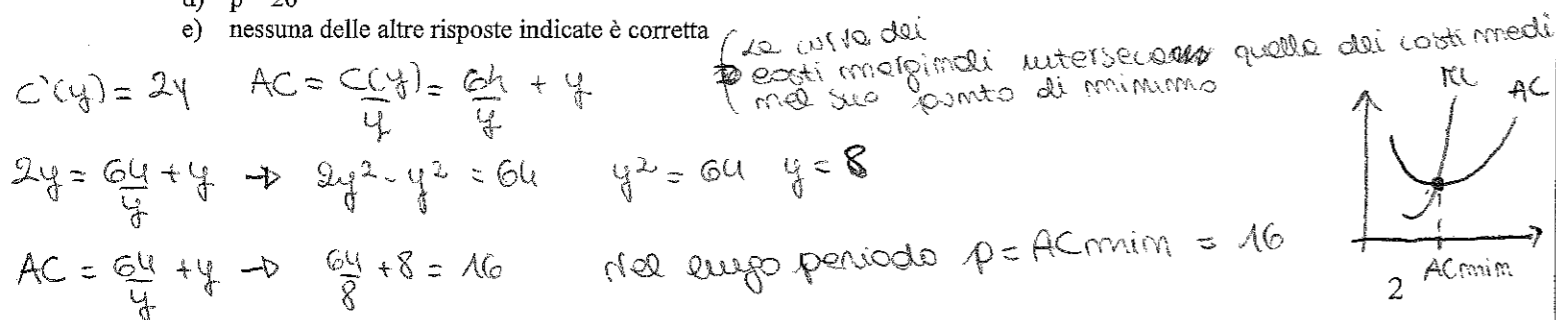 d) p = 20
e) nessuna delle altre risposte indicate è corretta
La curva dei
costi marginali interseca quella dei costi medi
nel suo punto di minimo
C'(y) = 2y AC = C(y)/y = 64/y + y
MC AC
2y = 64/y + y → 2y² - y² = 64 y² = 64 y = 8
AC = 64/y + y → 64/8 + 8 = 16 Nel lungo periodo p = ACmin = 16
ACmin
2